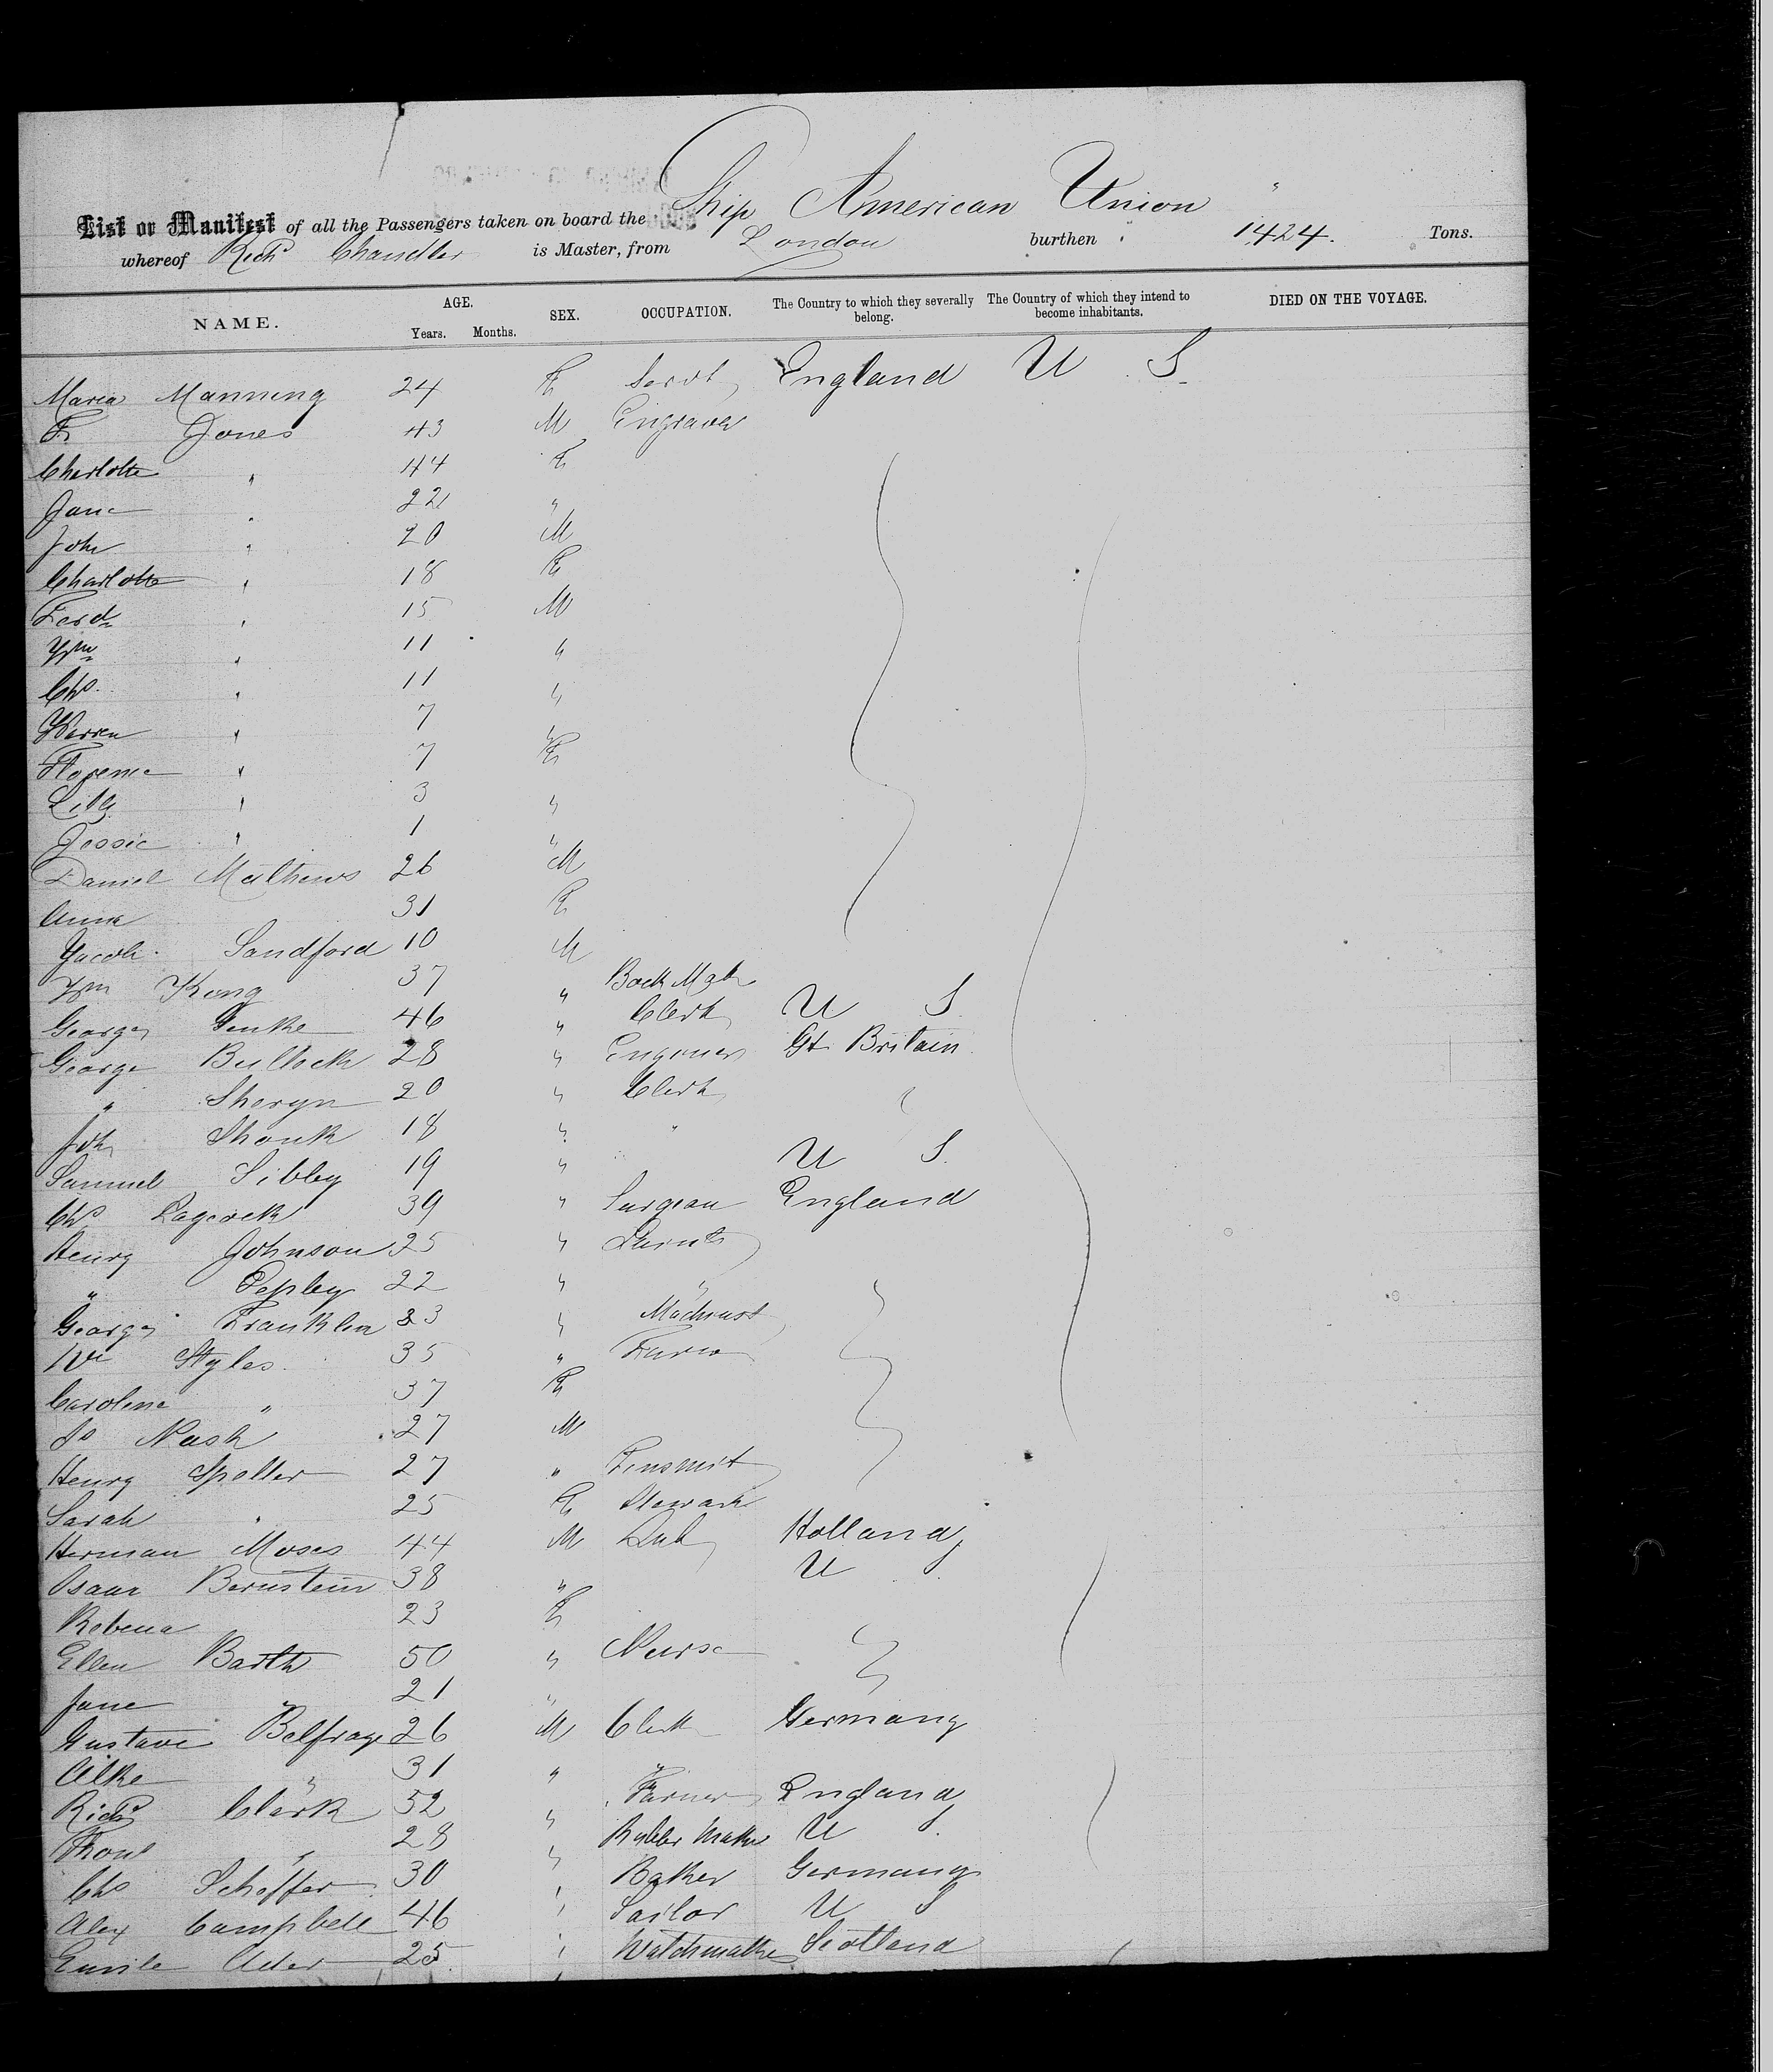 Ship American Union "
List or Manifest of all the Passengers taken on board the
whereof Richd Chandler is Master, from London burthen 1424. Tons.
NAME. AGE. Years. Months. SEX. OCCUPATION. The Country to which they severally belong. The Country of which they intend to become inhabitants. DIED ON THE VOYAGE.
Maria Manning 24 F Servt England U S.
F Jones 43 M Engraver
Charlotte " 44 F
Jane " 22 "
John " 20 M
Charlotte " 18 F
Ferd " 15 M
Wm " 11 "
Chs " 11 "
Warren " 7 "
Florence " 7 F
Lily " 3 "
Jessie " 1 "
Daniel Mathews 26 M
Anna 31 F
Jacob Sandford 10 M
Wm King 37 "
George 46 " Clerk U S.
George Bullock 28 " Engineer Gt Britain
" 20 " Clerk "
John Shonk 18 " "
Samuel Sibley 19 " U S.
Chs Laycock 39 " Surgeon England
Henry Johnson 25 "
" Pepley 22 " "
George Franklin 33 " Machinist
Styles 35 "
Caroline " 37 F
Nash 27 M
Henry Speller 27 " Tinsmit
Sarah " 25 F
Herman Moses 44 M Holland
Isaac Bernstein 38 " U S
23 F
Ellen Barth 50 " Nurse
Jane " 21 "
Gustave Belfrage 26 M Clerk Germany
" 31 " "
Richd Clark 52 " Farmer England
" 28 " Rubber Maker U S
Chs Scheffer 30 " Baker Germany
Alex Campbell 46 " Sailor U S
Emile Ader 25 " Watchmaker Scotland